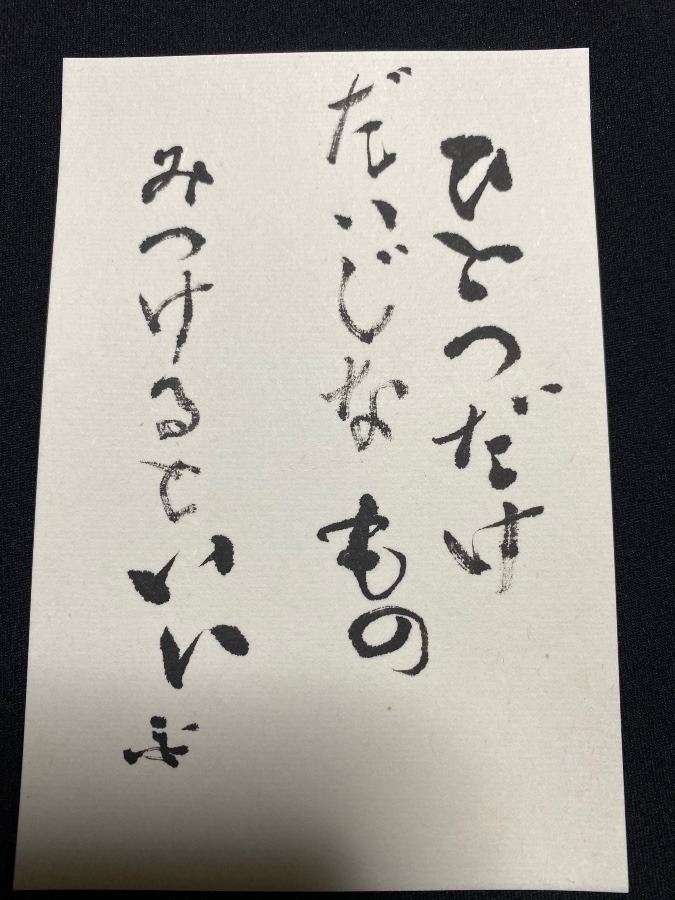 ひとつだけ
だいじなもの
みつけるといい